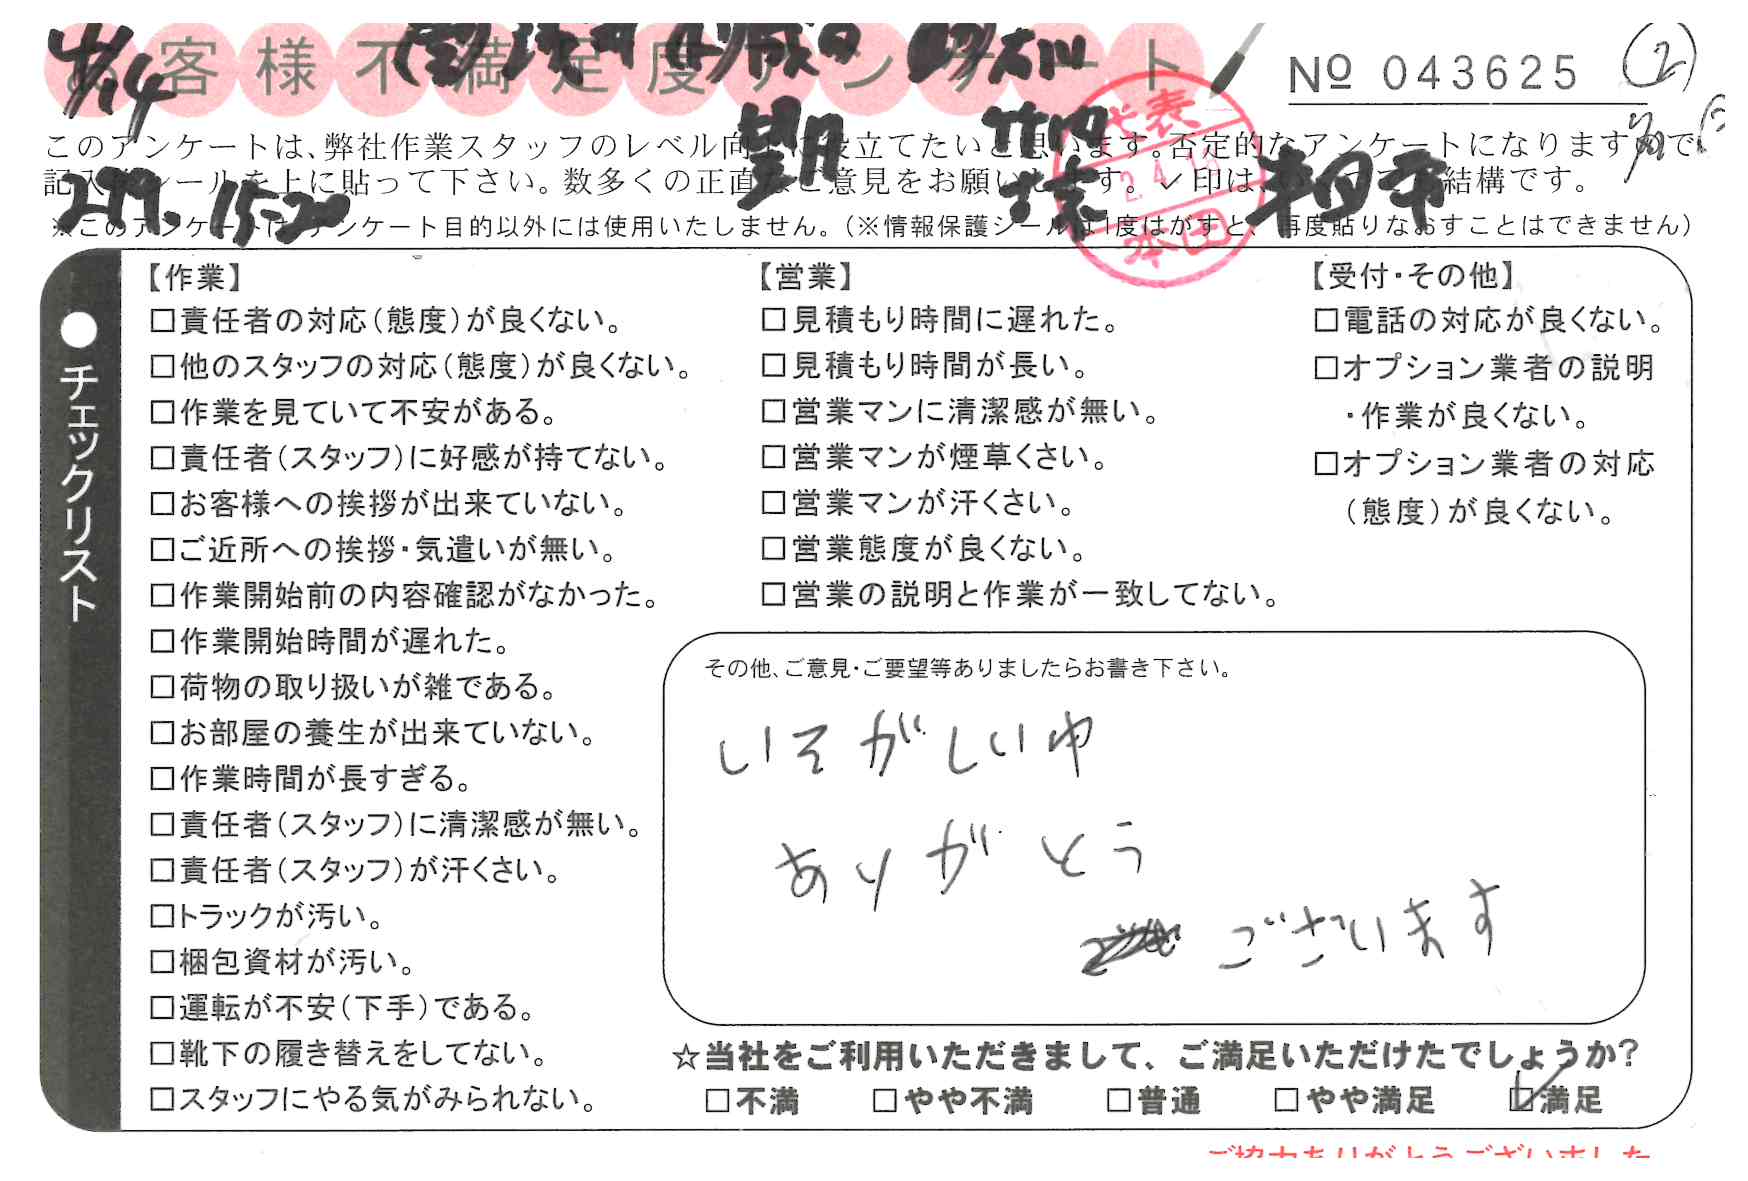 お客様不満足度アンケート
4/14
№ 043625
2
このアンケートは、弊社作業スタッフのレベル向上に役立てたいと思います。否定的なアンケートになりますので
記入後シールを上に貼って下さい。数多くの正直なご意見をお願いします。✓印は、いくつでも結構です。
望月
竹田
半田市
代表
本田
15-20
※このアンケートはアンケート目的以外には使用いたしません。(※情報保護シールは1度はがすと、再度貼りなおすことはできません)
●チェックリスト
【作業】
□責任者の対応(態度)が良くない。
□他のスタッフの対応(態度)が良くない。
□作業を見ていて不安がある。
□責任者(スタッフ)に好感が持てない。
□お客様への挨拶が出来ていない。
□ご近所への挨拶・気遣いが無い。
□作業開始前の内容確認がなかった。
□作業開始時間が遅れた。
□荷物の取り扱いが雑である。
□お部屋の養生が出来ていない。
□作業時間が長すぎる。
□責任者(スタッフ)に清潔感が無い。
□責任者(スタッフ)が汗くさい。
□トラックが汚い。
□梱包資材が汚い。
□運転が不安(下手)である。
□靴下の履き替えをしてない。
□スタッフにやる気がみられない。
【営業】
□見積もり時間に遅れた。
□見積もり時間が長い。
□営業マンに清潔感が無い。
□営業マンが煙草くさい。
□営業マンが汗くさい。
□営業態度が良くない。
□営業の説明と作業が一致してない。
【受付・その他】
□電話の対応が良くない。
□オプション業者の説明
・作業が良くない。
□オプション業者の対応
(態度)が良くない。
その他、ご意見・ご要望等ありましたらお書き下さい。
いそがしい中
ありがとう
ございます
☆当社をご利用いただきまして、ご満足いただけたでしょうか?
□不満 □やや不満 □普通 □やや満足 ☑満足
ご協力ありがとうございました